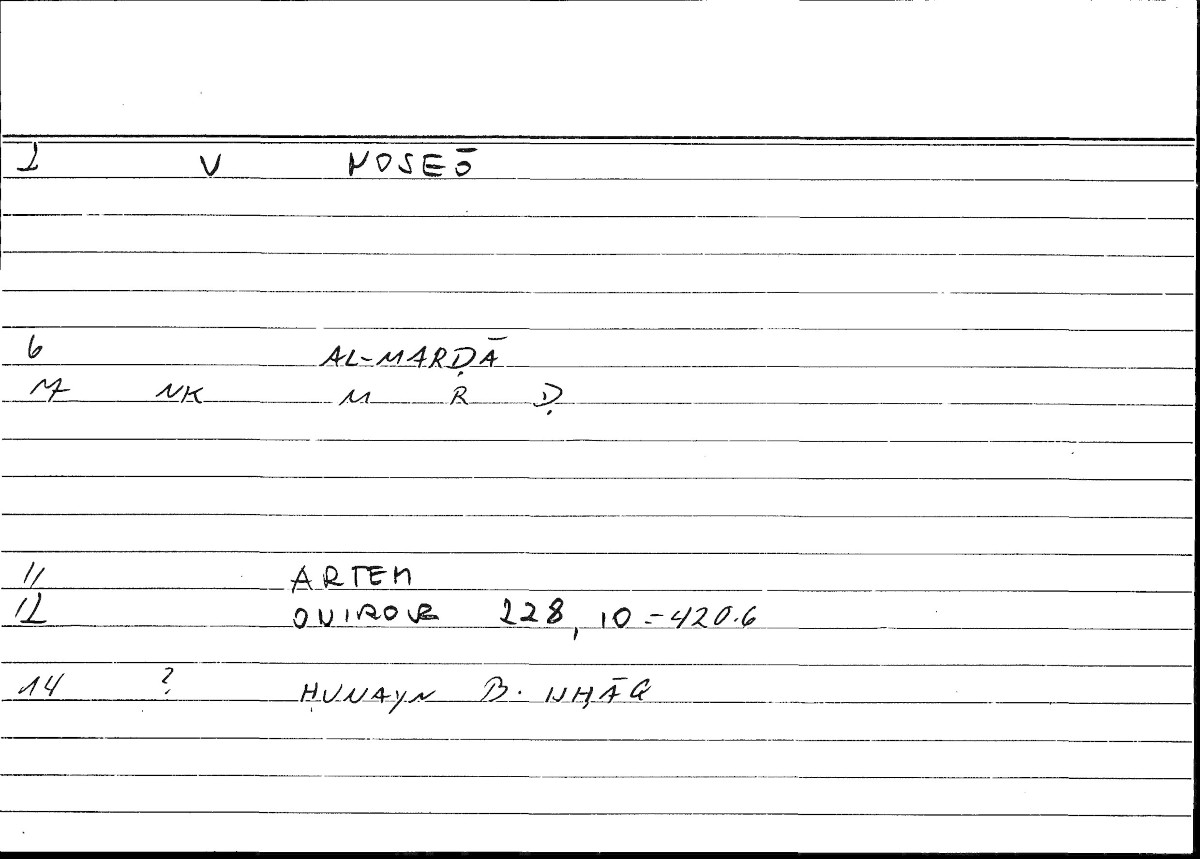 1 V NOSEŌ
6 AL-MARḌĀ
NK M R Ḍ
11 ARTEM
12 ONIROCR 228, 10 = 420.6
14 ? ḤUNAYN B. ISḤĀQ